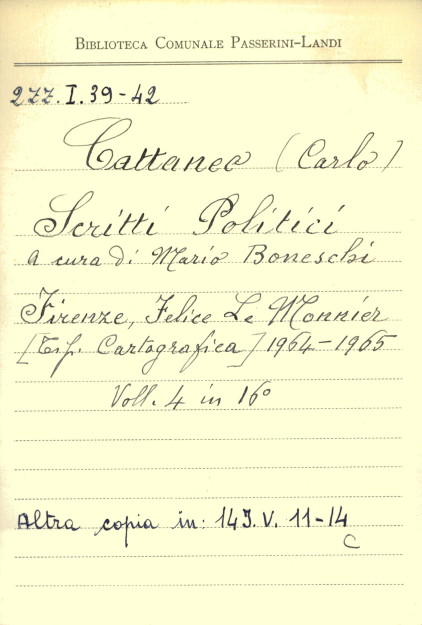 BIBLIOTECA COMUNALE PASSERINI-LANDI
277.I.39-42
Cattaneo (Carlo)
Scritti Politici
a cura di Mario Boneschi
Firenze, Felice Le Monnier
[Tip. Cartografica] 1964-1965
Voll. 4 in 16°
Altra copia in: 143.V. 11-14
C